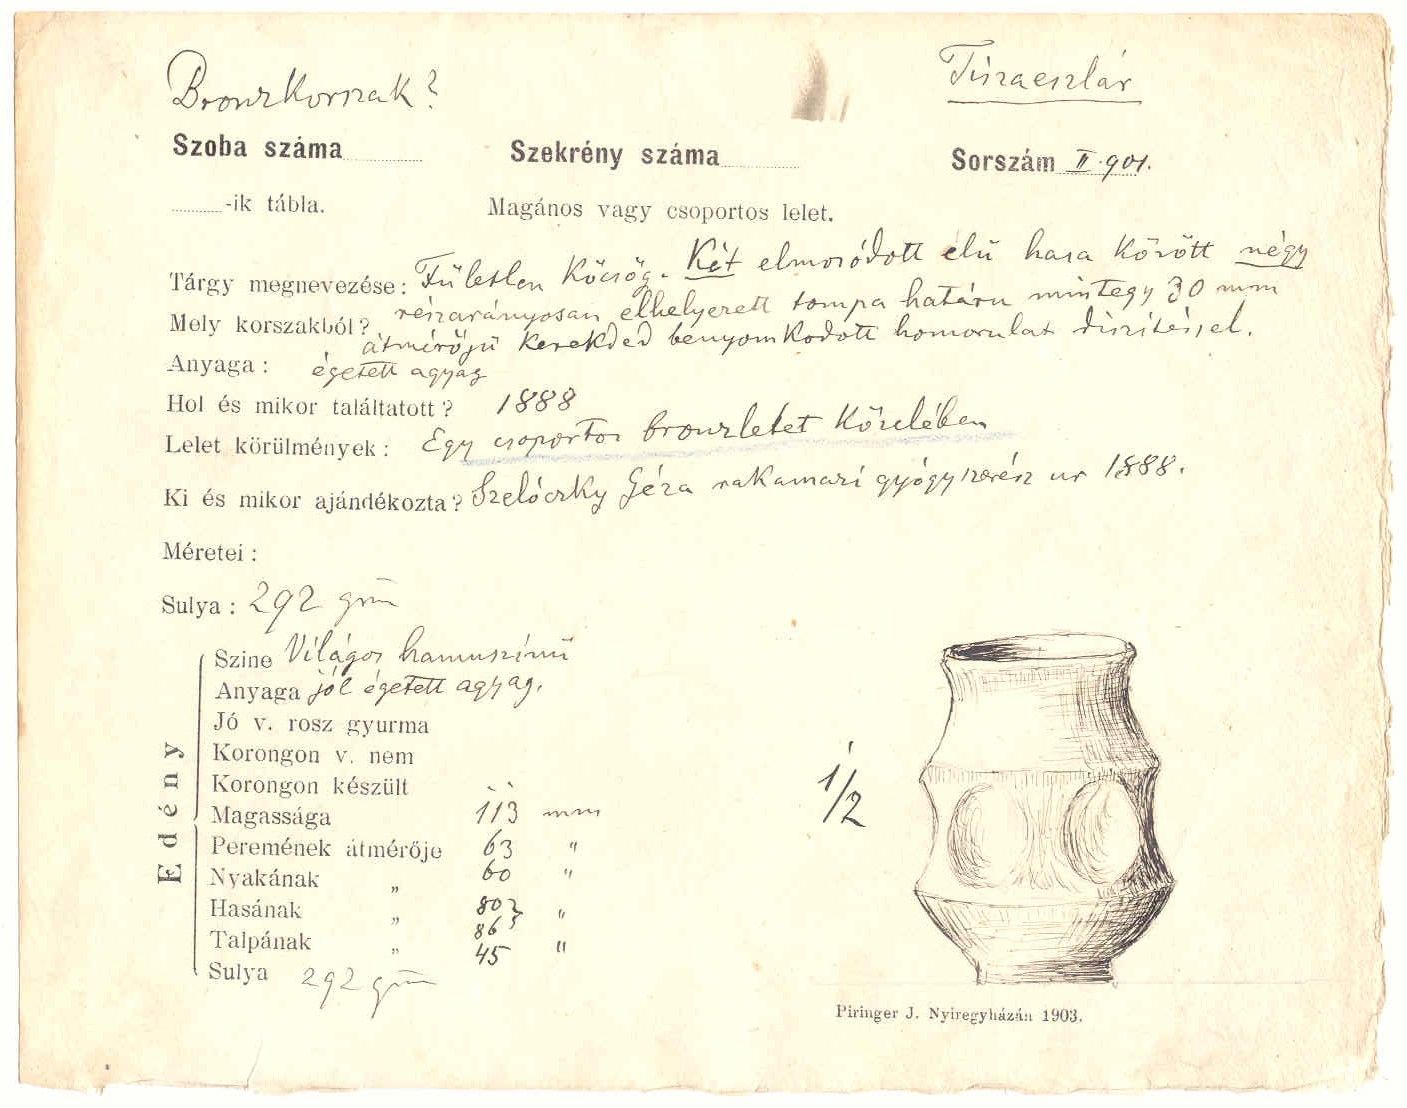 Bronzkorszak?
Tiszaeszlár
Szoba száma
Szekrény száma
Sorszám II. 901.
-ik tábla.
Magános vagy csoportos lelet.
Tárgy megnevezése: Fületlen köcsög. Két elmosódott élű hasa körött négy
részarányosan elhelyezett tompa határu mintegy 30 mm
Mely korszakból?
átmérőjű kerekded benyomkodott homorulat díszítéssel.
Anyaga: égetett agyag
Hol és mikor találtatott? 1888
Lelet körülmények: Egy csoportos bronzlelet közelében
Ki és mikor ajándékozta? Szelóczky Géza rakamazi gyógyszerész ur 1888.
Méretei:
Sulya: 292 grm
Edény
Szine Világos hamuszinü
Anyaga jól égetett agyag.
Jó v. rosz gyurma
Korongon v. nem
Korongon készült
Magassága 113 mm
Peremének átmérője 63 "
Nyakának " 60 "
Hasának " 80 86 "
Talpának " 45 "
Sulya 292 grm
1/2
Piringer J. Nyiregyházán 1903.